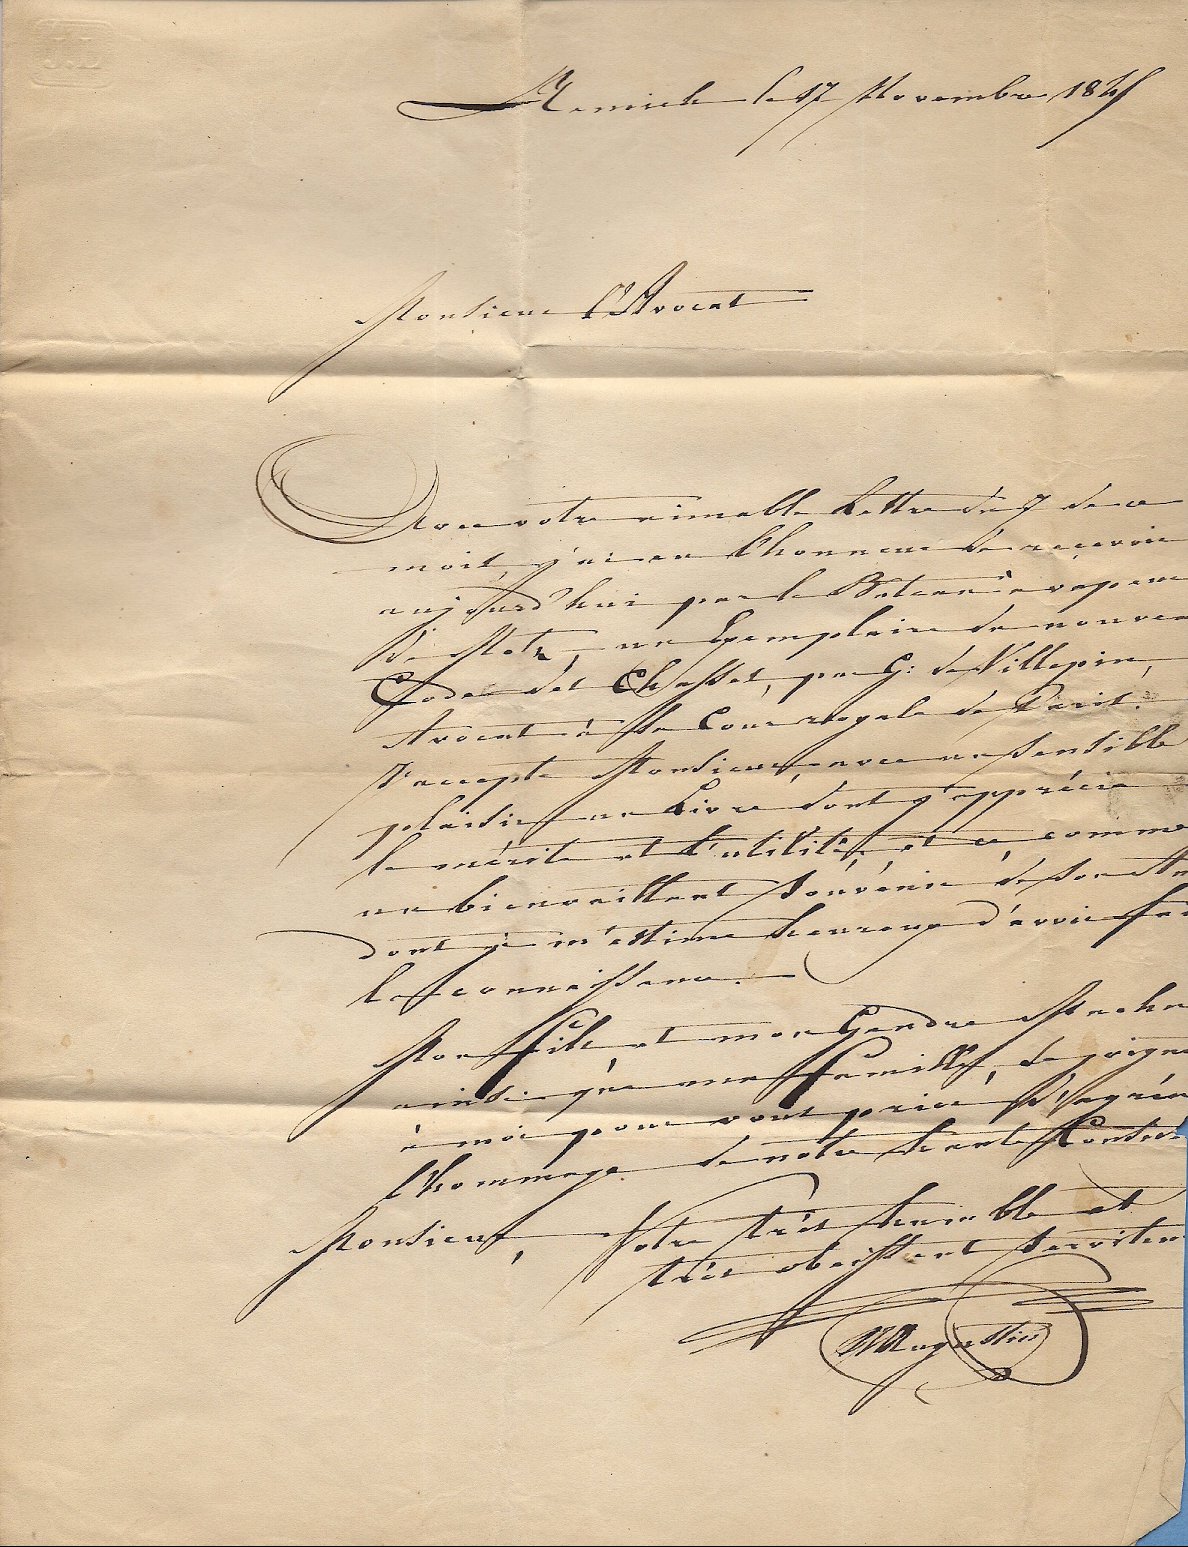 Remich le 17 Novembre 184
Monsieur l'Avocat
Avec votre aimable Lettre du 7 de ce
mois, j'ai eu l'honneur de recevoir
aujourd'hui par le Bateau à vapeur
de Metz, un Exemplaire du nouveau
Code des Chasses, par G: de Villepin,
Avocat à la Cour royale de Paris.
J'accepte Monsieur, avec un sensible
plaisir un Livre dont j'apprécie
le mérite et l'utilité, et ce, comme
un bienveillant Souvenir de son
dont je m'estime heureux d'avoir fai
la connaissance.
Mon fils et mon Gendre
ainsi que ma famille, se joignent
à moi pour vous prier d'agréer
l'hommage de notre haute Considé
Monsieur, Votre très humble et
très obeissant Serviteur
Augustin